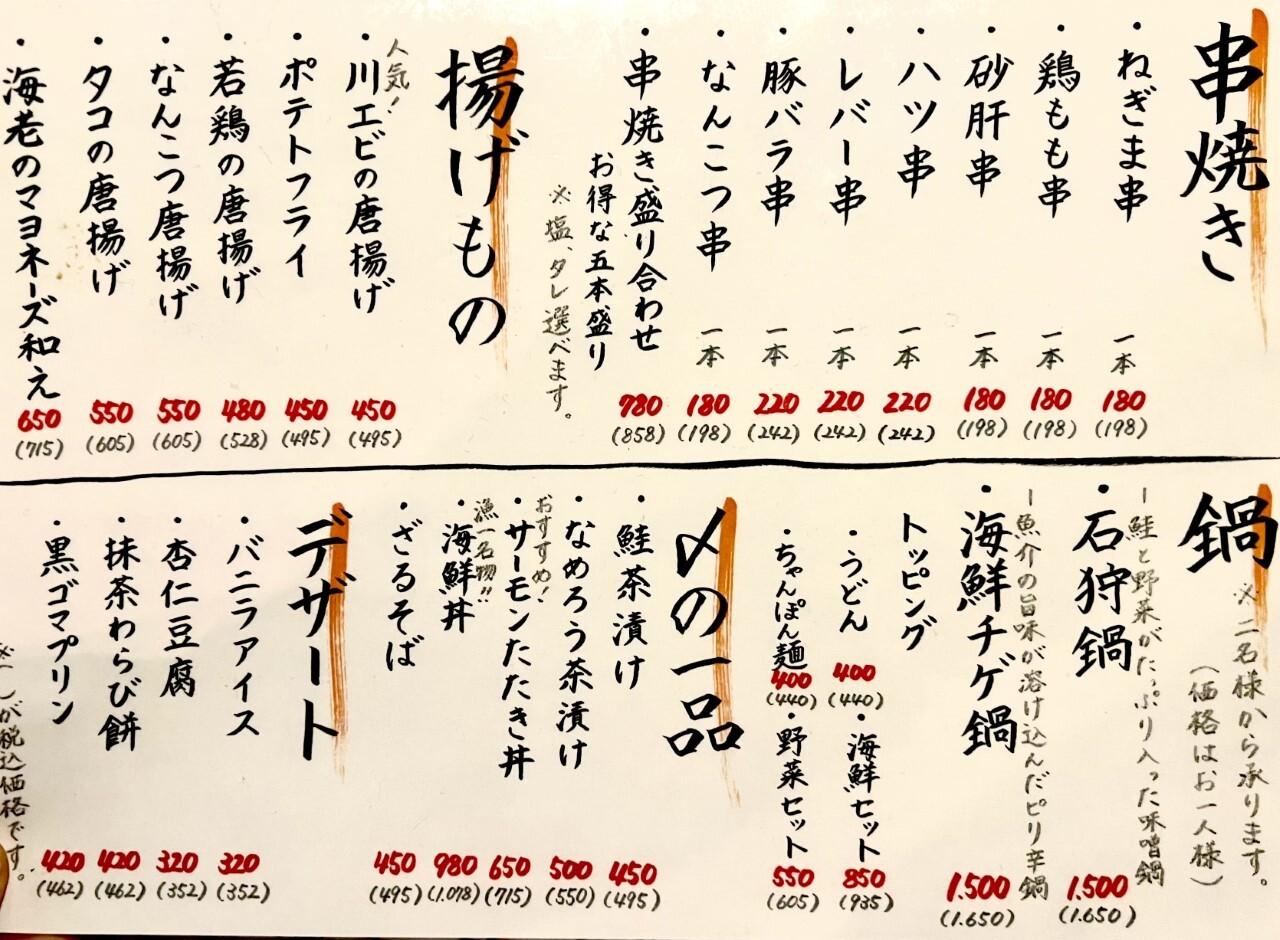 串焼き
・ねぎま串 一本 180 (198)
・鶏もも串 一本 180 (198)
・砂肝串 一本 180 (198)
・ハツ串 一本 220 (242)
・レバー串 一本 220 (242)
・豚バラ串 一本 220 (242)
・なんこつ串 一本 180 (198)
・串焼き盛り合わせ 780 (858)
お得な五本盛り
※塩、タレ選べます。
揚げもの
人気!
・川エビの唐揚げ 450 (495)
・ポテトフライ 450 (495)
・若鶏の唐揚げ 480 (528)
・なんこつ唐揚げ 550 (605)
・タコの唐揚げ 550 (605)
・海老のマヨネーズ和え 650 (715)
鍋
※二名様から承ります。
(価格はお一人様)
ー鮭と野菜がたっぷり入った味噌鍋
・石狩鍋 1.500 (1.650)
ー魚介の旨味が溶け込んだピリ辛鍋
・海鮮チゲ鍋 1.500 (1.650)
トッピング
・うどん 400 (440)
・海鮮セット 850 (935)
・ちゃんぽん麺 400 (440)
・野菜セット 550 (605)
〆の一品
・鮭茶漬け 450 (495)
・なめろう茶漬け 500 (550)
おすすめ!
・サーモンたたき丼 650 (715)
漁一名物!!
・海鮮丼 980 (1.078)
・ざるそば 450 (495)
デザート
・バニラアイス 320 (352)
・杏仁豆腐 320 (352)
・抹茶わらび餅 420 (462)
・黒ゴマプリン 420 (462)
※( )が税込価格です。